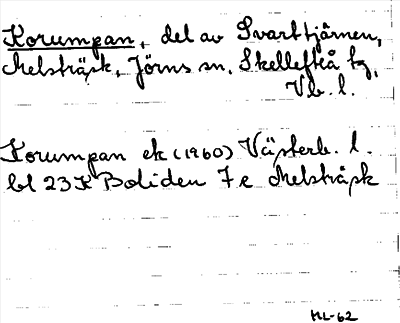 Korumpan, del av Svarttjärnen,
Melsträsk, Jörns sn, Skellefteå tg,
Vb. l.
Korumpan ek (1960) Västerb. l.
bl 23K Boliden 7e Melsträsk
HL-62